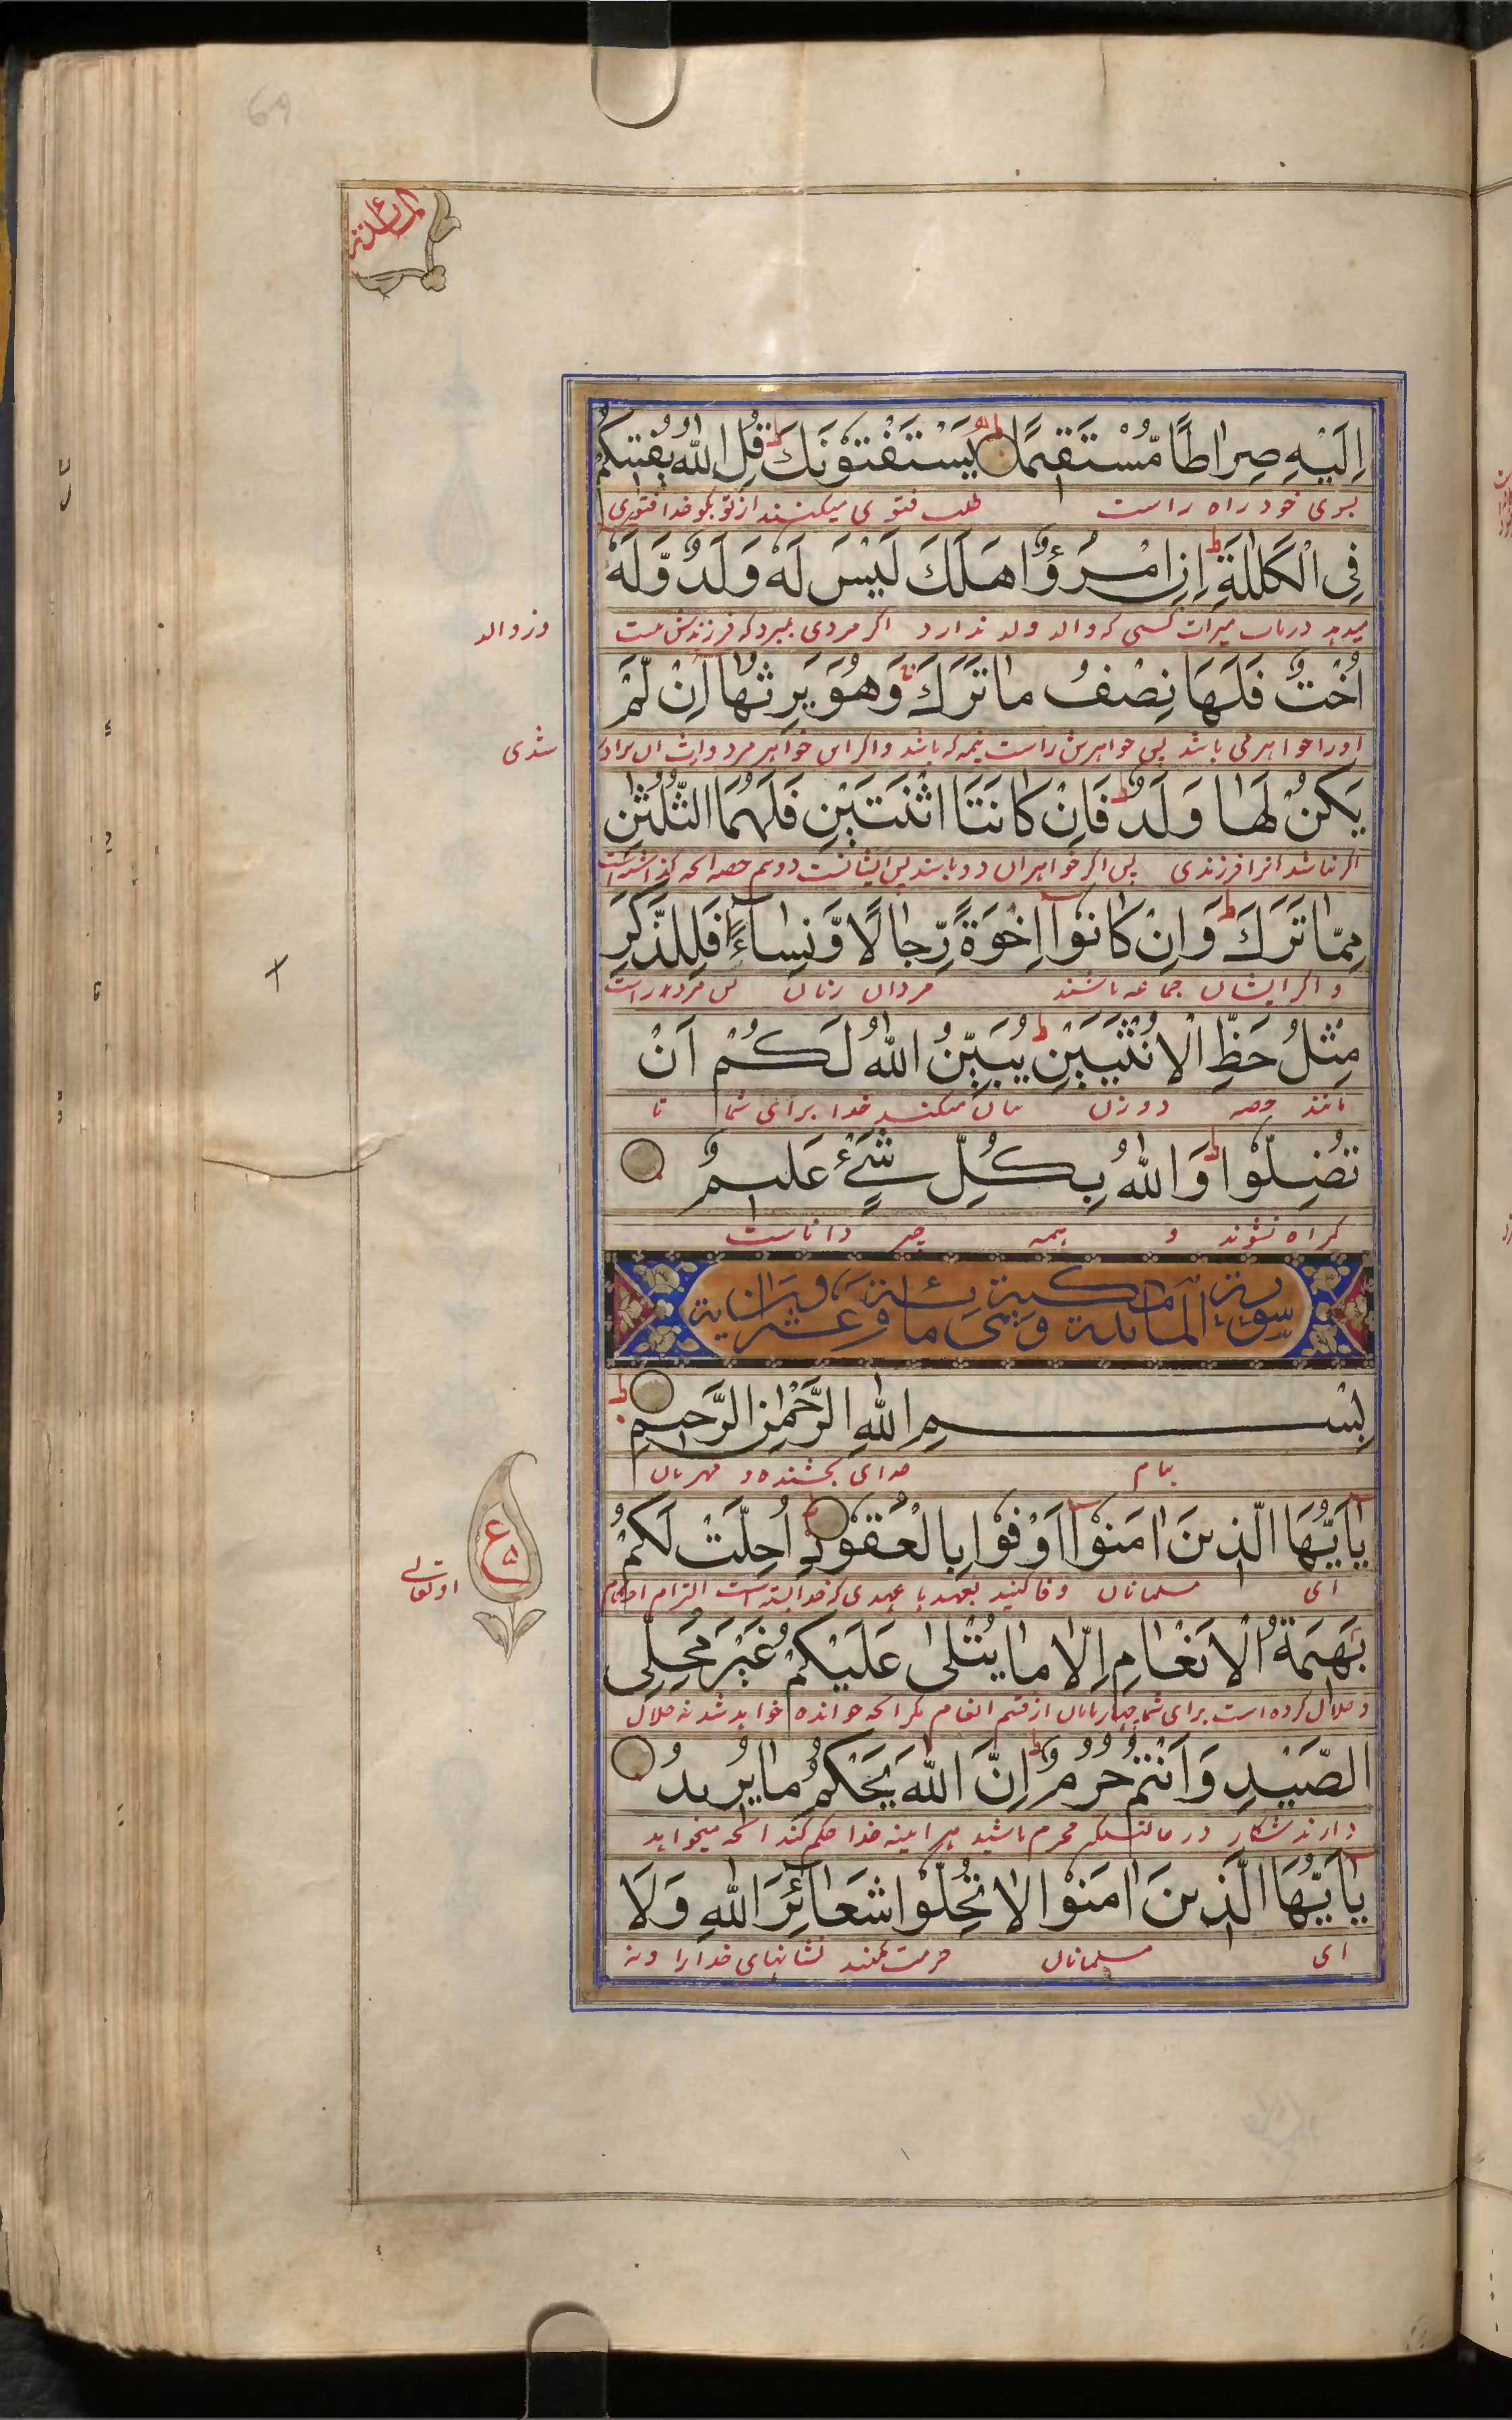 69
المائدة
اِلَيْهِ صِرَاطًا مُّسْتَقِيْمًا يَسْتَفْتُوْنَكَ قُلِ اللّٰهُ يُفْتِيْكُمْ
بسوی خود راه راست طلب فتوی میکنند از تو بگو خدا فتوی
فِى الْكَلٰلَةِ اِنِ امْرُؤٌا هَلَكَ لَيْسَ لَهٗ وَلَدٌ وَّلَهٗٓ
میدهد درباب میراث کسی که والد و ولد ندارد اگر مردی بمیرد که فرزندش نیست
و نه والد
اُخْتٌ فَلَهَا نِصْفُ مَا تَرَكَ وَهُوَ يَرِثُهَا اِنْ لَّمْ
او را خواهری باشد پس خواهرش راست نیمه که باشد و اگر این خواهر مرد وارث آن برادر
شدی
يَكُنْ لَهَا وَلَدٌ فَاِنْ كَانَتَا اثْنَتَيْنِ فَلَهُمَا الثُّلُثٰنِ
اگر نباشد آنرا فرزندی پس اگر خواهران دو باشند پس ایشانست دو سیم حصه آنچه گذاشته است
مِمَّا تَرَكَ وَاِنْ كَانُوْٓا اِخْوَةً رِّجَالًا وَّنِسَآءً فَلِلذَّكَرِ
و اگر ایشان جماعه باشند مردان زنان پس مرد راست
مِثْلُ حَظِّ الْاُنْثَيَيْنِ يُبَيِّنُ اللّٰهُ لَكُمْ اَنْ
مانند حصه دو زن بیان میکند خدا برای شما تا
تَضِلُّوْا وَاللّٰهُ بِكُلِّ شَىْءٍ عَلِيْمٌ
گمراه نشوند و بهمه چیز داناست
سورة المائدة مكية وهى مائة وعشرون اية
بِسْمِ اللّٰهِ الرَّحْمٰنِ الرَّحِيْمِ
بنام خدای بخشنده و مهربان
يٰٓاَيُّهَا الَّذِيْنَ اٰمَنُوْٓا اَوْفُوْا بِالْعُقُوْدِ اُحِلَّتْ لَكُمْ
ع ۵
ای مسلمانان وفا کنید بعهد با عهدی که خدا بسته است التزام احکام
او تعالی
بَهِيْمَةُ الْاَنْعَامِ اِلَّا مَا يُتْلٰى عَلَيْكُمْ غَيْرَ مُحِلِّى
و حلال کرده است برای شما چهارپایان از قسم انعام مگر آنچه خوانده خواهد شد نه حلال
الصَّيْدِ وَاَنْتُمْ حُرُمٌ اِنَّ اللّٰهَ يَحْكُمُ مَا يُرِيْدُ
دارند شکار در حالتیکه محرم باشید هر آینه خدا حکم کند آنچه میخواهد
يٰٓاَيُّهَا الَّذِيْنَ اٰمَنُوْا لَا تُحِلُّوْا شَعَآئِرَ اللّٰهِ وَلَا
ای مسلمانان حرمت مکنید نشانهای خدا را و نه